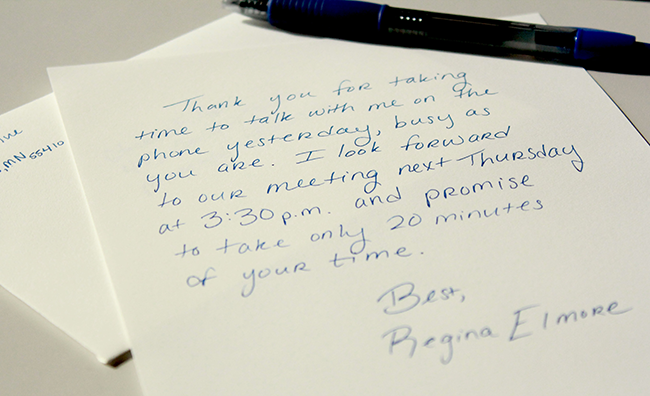 MN 55410
Thank you for taking
time to talk with me on the
phone yesterday, busy as
you are. I look forward
to our meeting next Thursday
at 3:30 p.m. and promise
to take only 20 minutes
of your time.
Best,
Regina Elmore